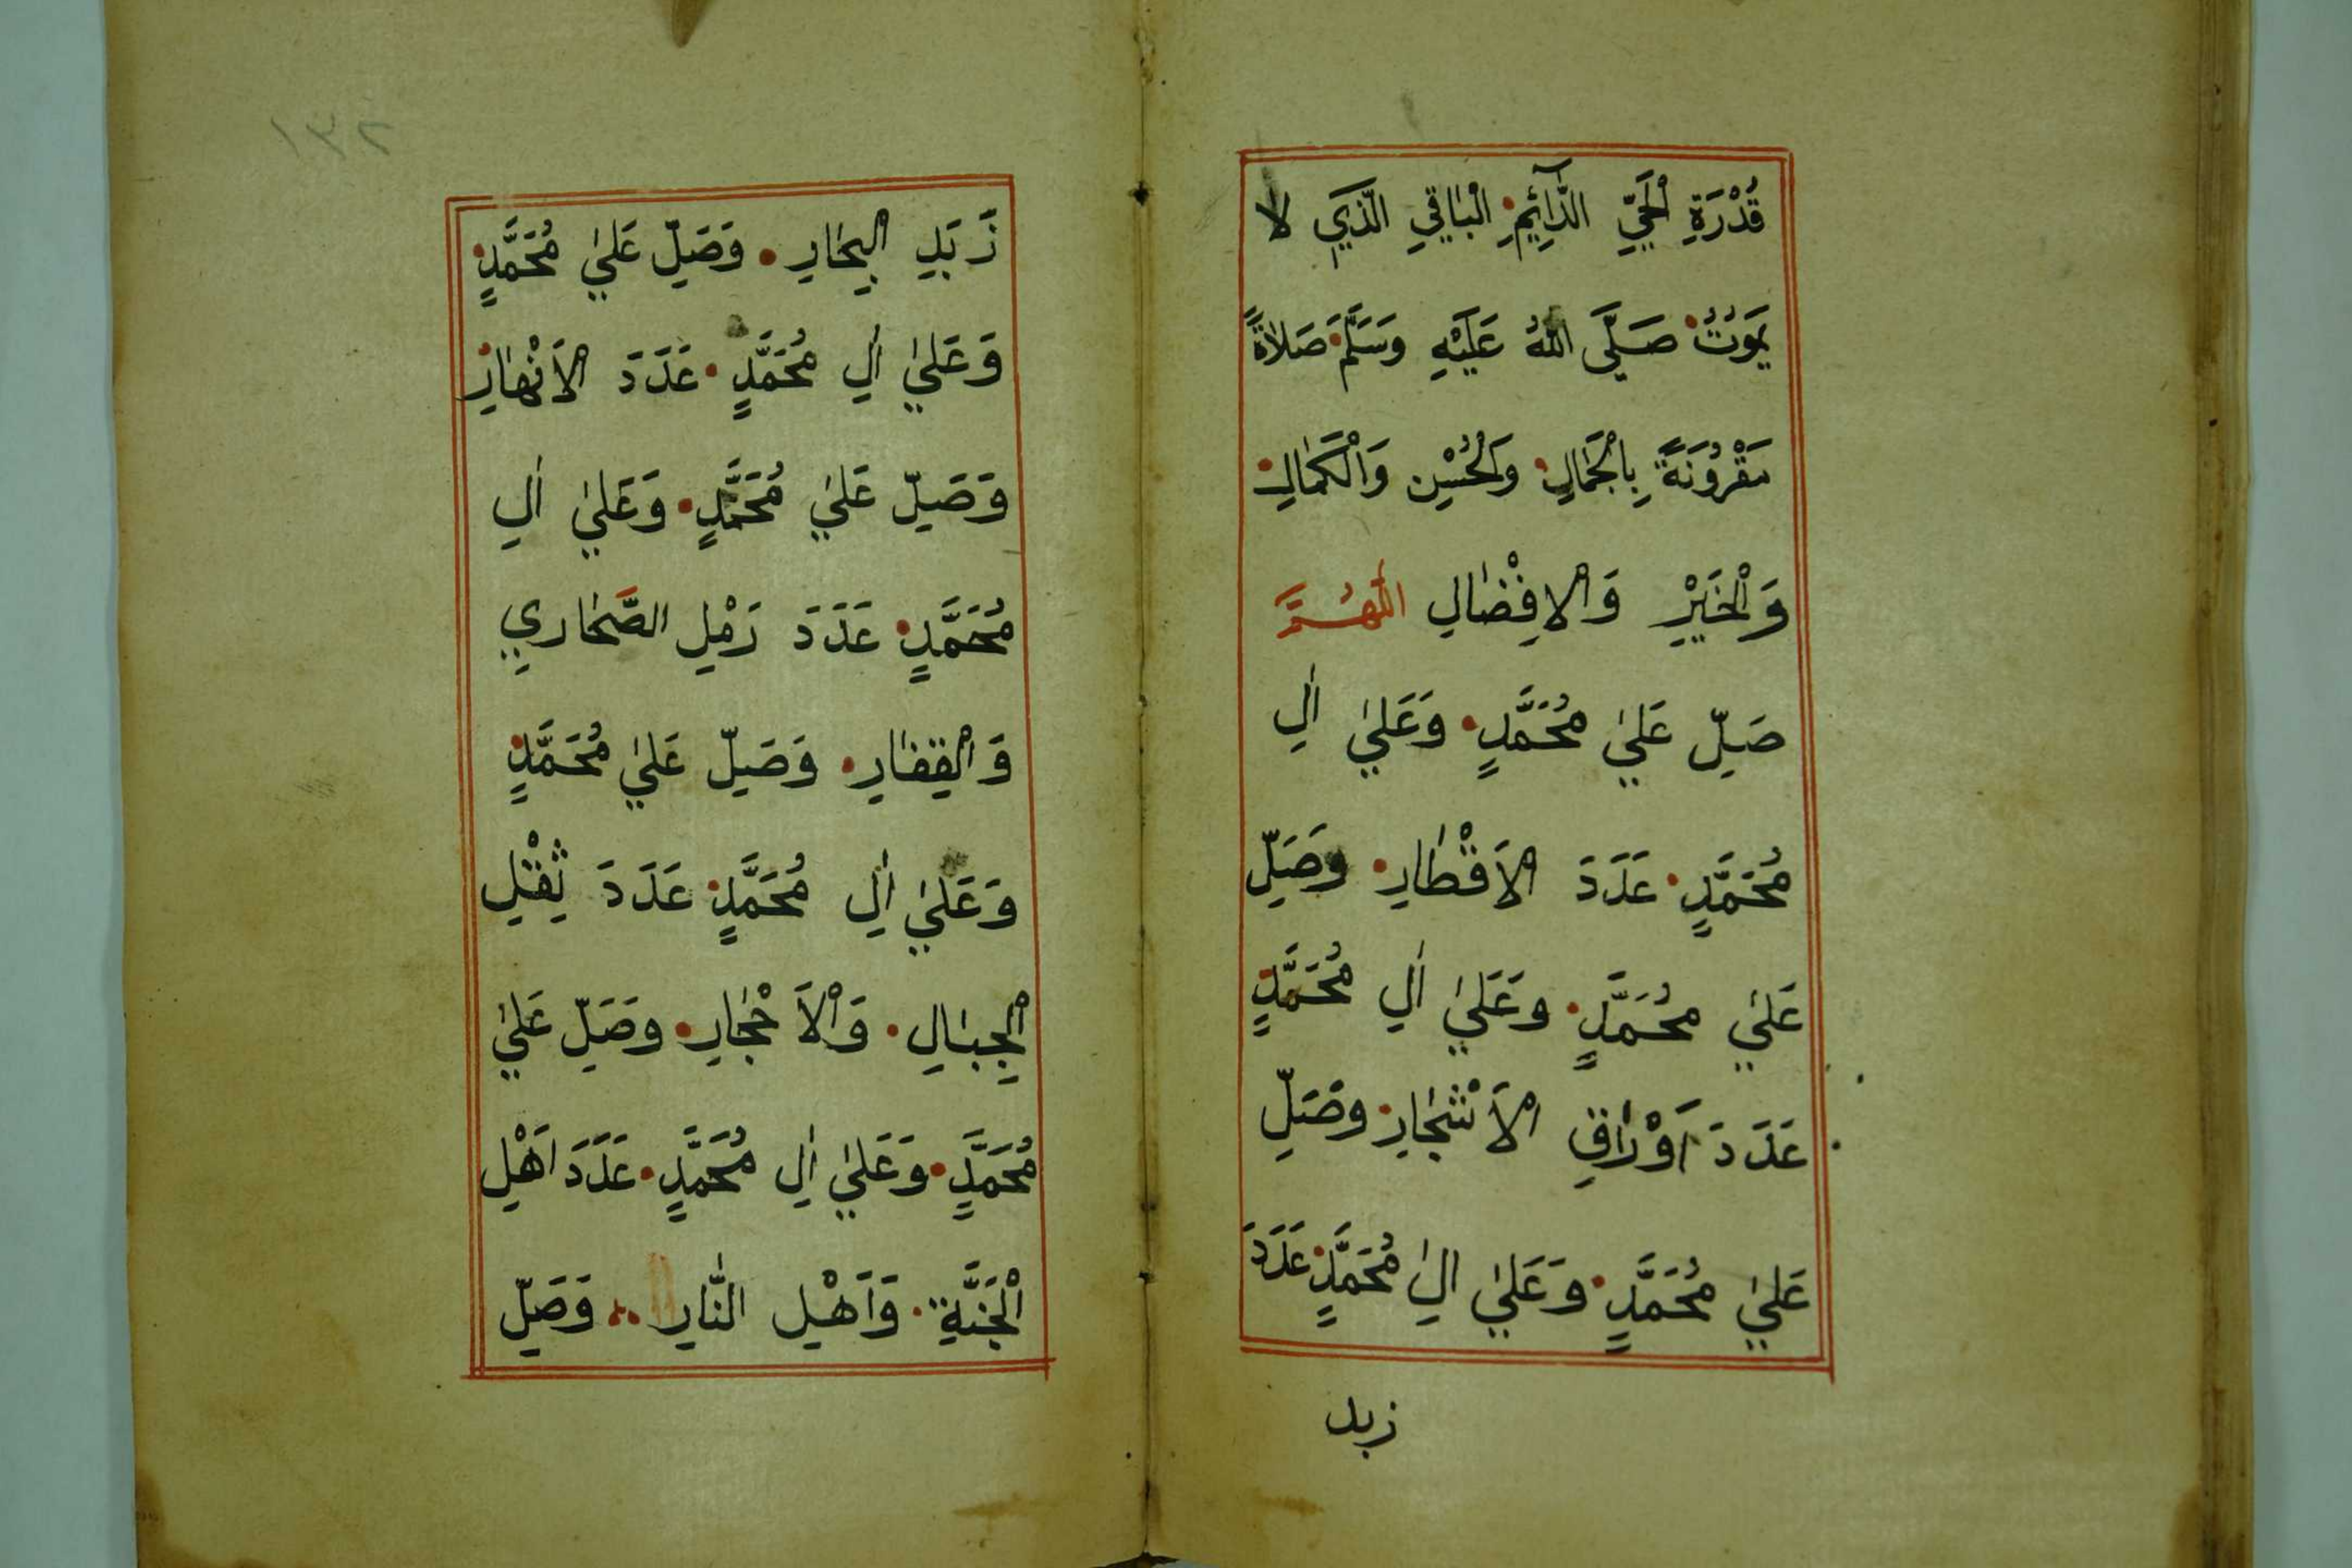 قُدْرَةِ الْحَيِّ الدَّآئِمِ الْبَاقِي الَّذِي لا
يَمَوْتُ صَلَّى اللهُ عَلَيْهِ وَسَلَّمَ صَلَاةً
مَقْرُونَةً بِالْجَمَالِ وَالْحُسْنِ وَالْكَمَالِ
وَالْخَيْرِ وَالْاِفْضَالِ اللّٰهُمَّ
صَلِّ عَلَي مُحَمَّدٍ وَعَلَي اٰلِ
مُحَمَّدٍ عَدَدَ الْاَقْطَارِ وَصَلِّ
عَلَي مُحَمَّدٍ وَعَلَي اٰلِ مُحَمَّدٍ
عَدَدَ اَوْرَاقِ الْاَشْجَارِ وَصَلِّ
عَلَي مُحَمَّدٍ وَعَلَي اٰلِ مُحَمَّدٍ عَدَدَ
زبد
١٣٢
زَبَدِ الْبِحَارِ وَصَلِّ عَلَي مُحَمَّدٍ
وَعَلَي اٰلِ مُحَمَّدٍ عَدَدَ الْاَنْهَارِ
وَصَلِّ عَلَي مُحَمَّدٍ وَعَلَي اٰلِ
مُحَمَّدٍ عَدَدَ رَمْلِ الصَّحَارِي
وَالْقِفَارِ وَصَلِّ عَلَي مُحَمَّدٍ
وَعَلَي اٰلِ مُحَمَّدٍ عَدَدَ ثِقْلِ
الْجِبَالِ وَالْاَحْجَارِ وَصَلِّ عَلَي
مُحَمَّدٍ وَعَلَي اٰلِ مُحَمَّدٍ عَدَدَ اَهْلِ
الْجَنَّةِ وَاَهْلِ النَّارِ وَصَلِّ